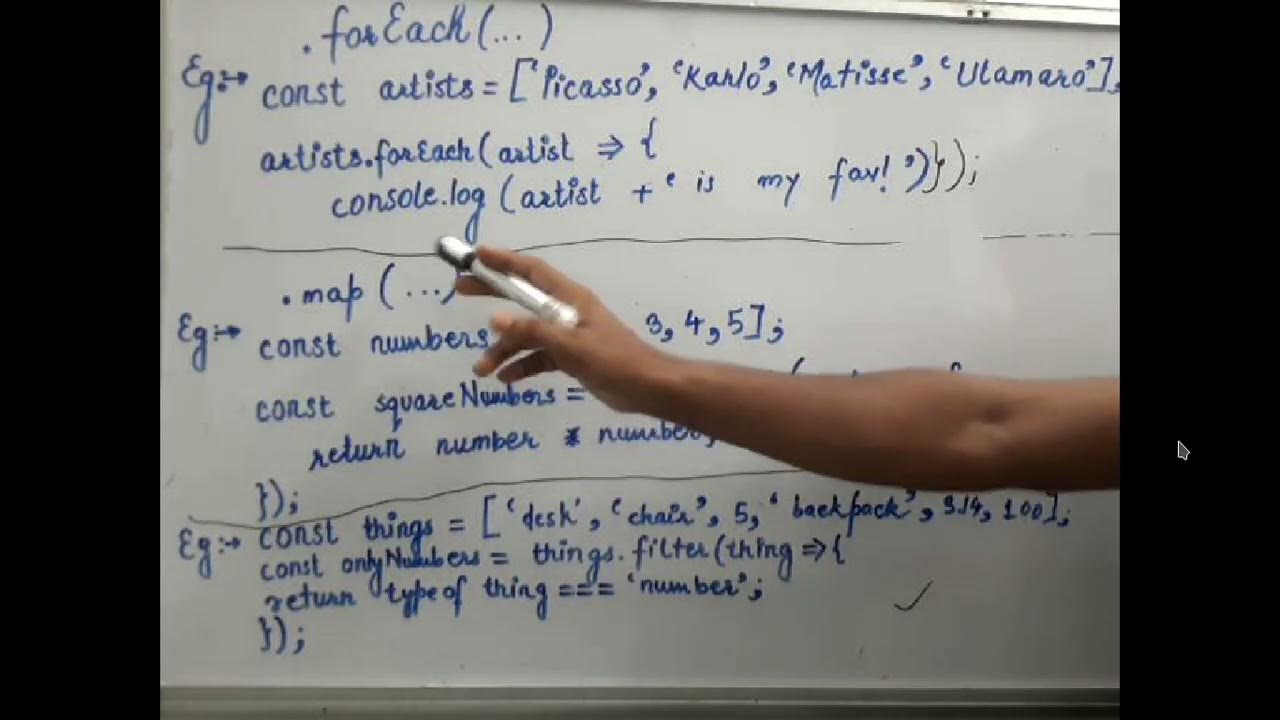 .forEach(...)
Eg:→ const artists = ['Picasso', 'Karlo', 'Matisse', 'Utamaro'];
artists.forEach(artist => {
console.log(artist + ' is my fav!')});
.map (...)
Eg:→ const numbers 3, 4, 5];
const squareNumbers =
return number * number;
});
Eg:→ const things = ['desk', 'chair', 5, 'backpack', 3.14, 100];
const onlyNumbers = things.filter(thing => {
return typeof thing === 'number';
});